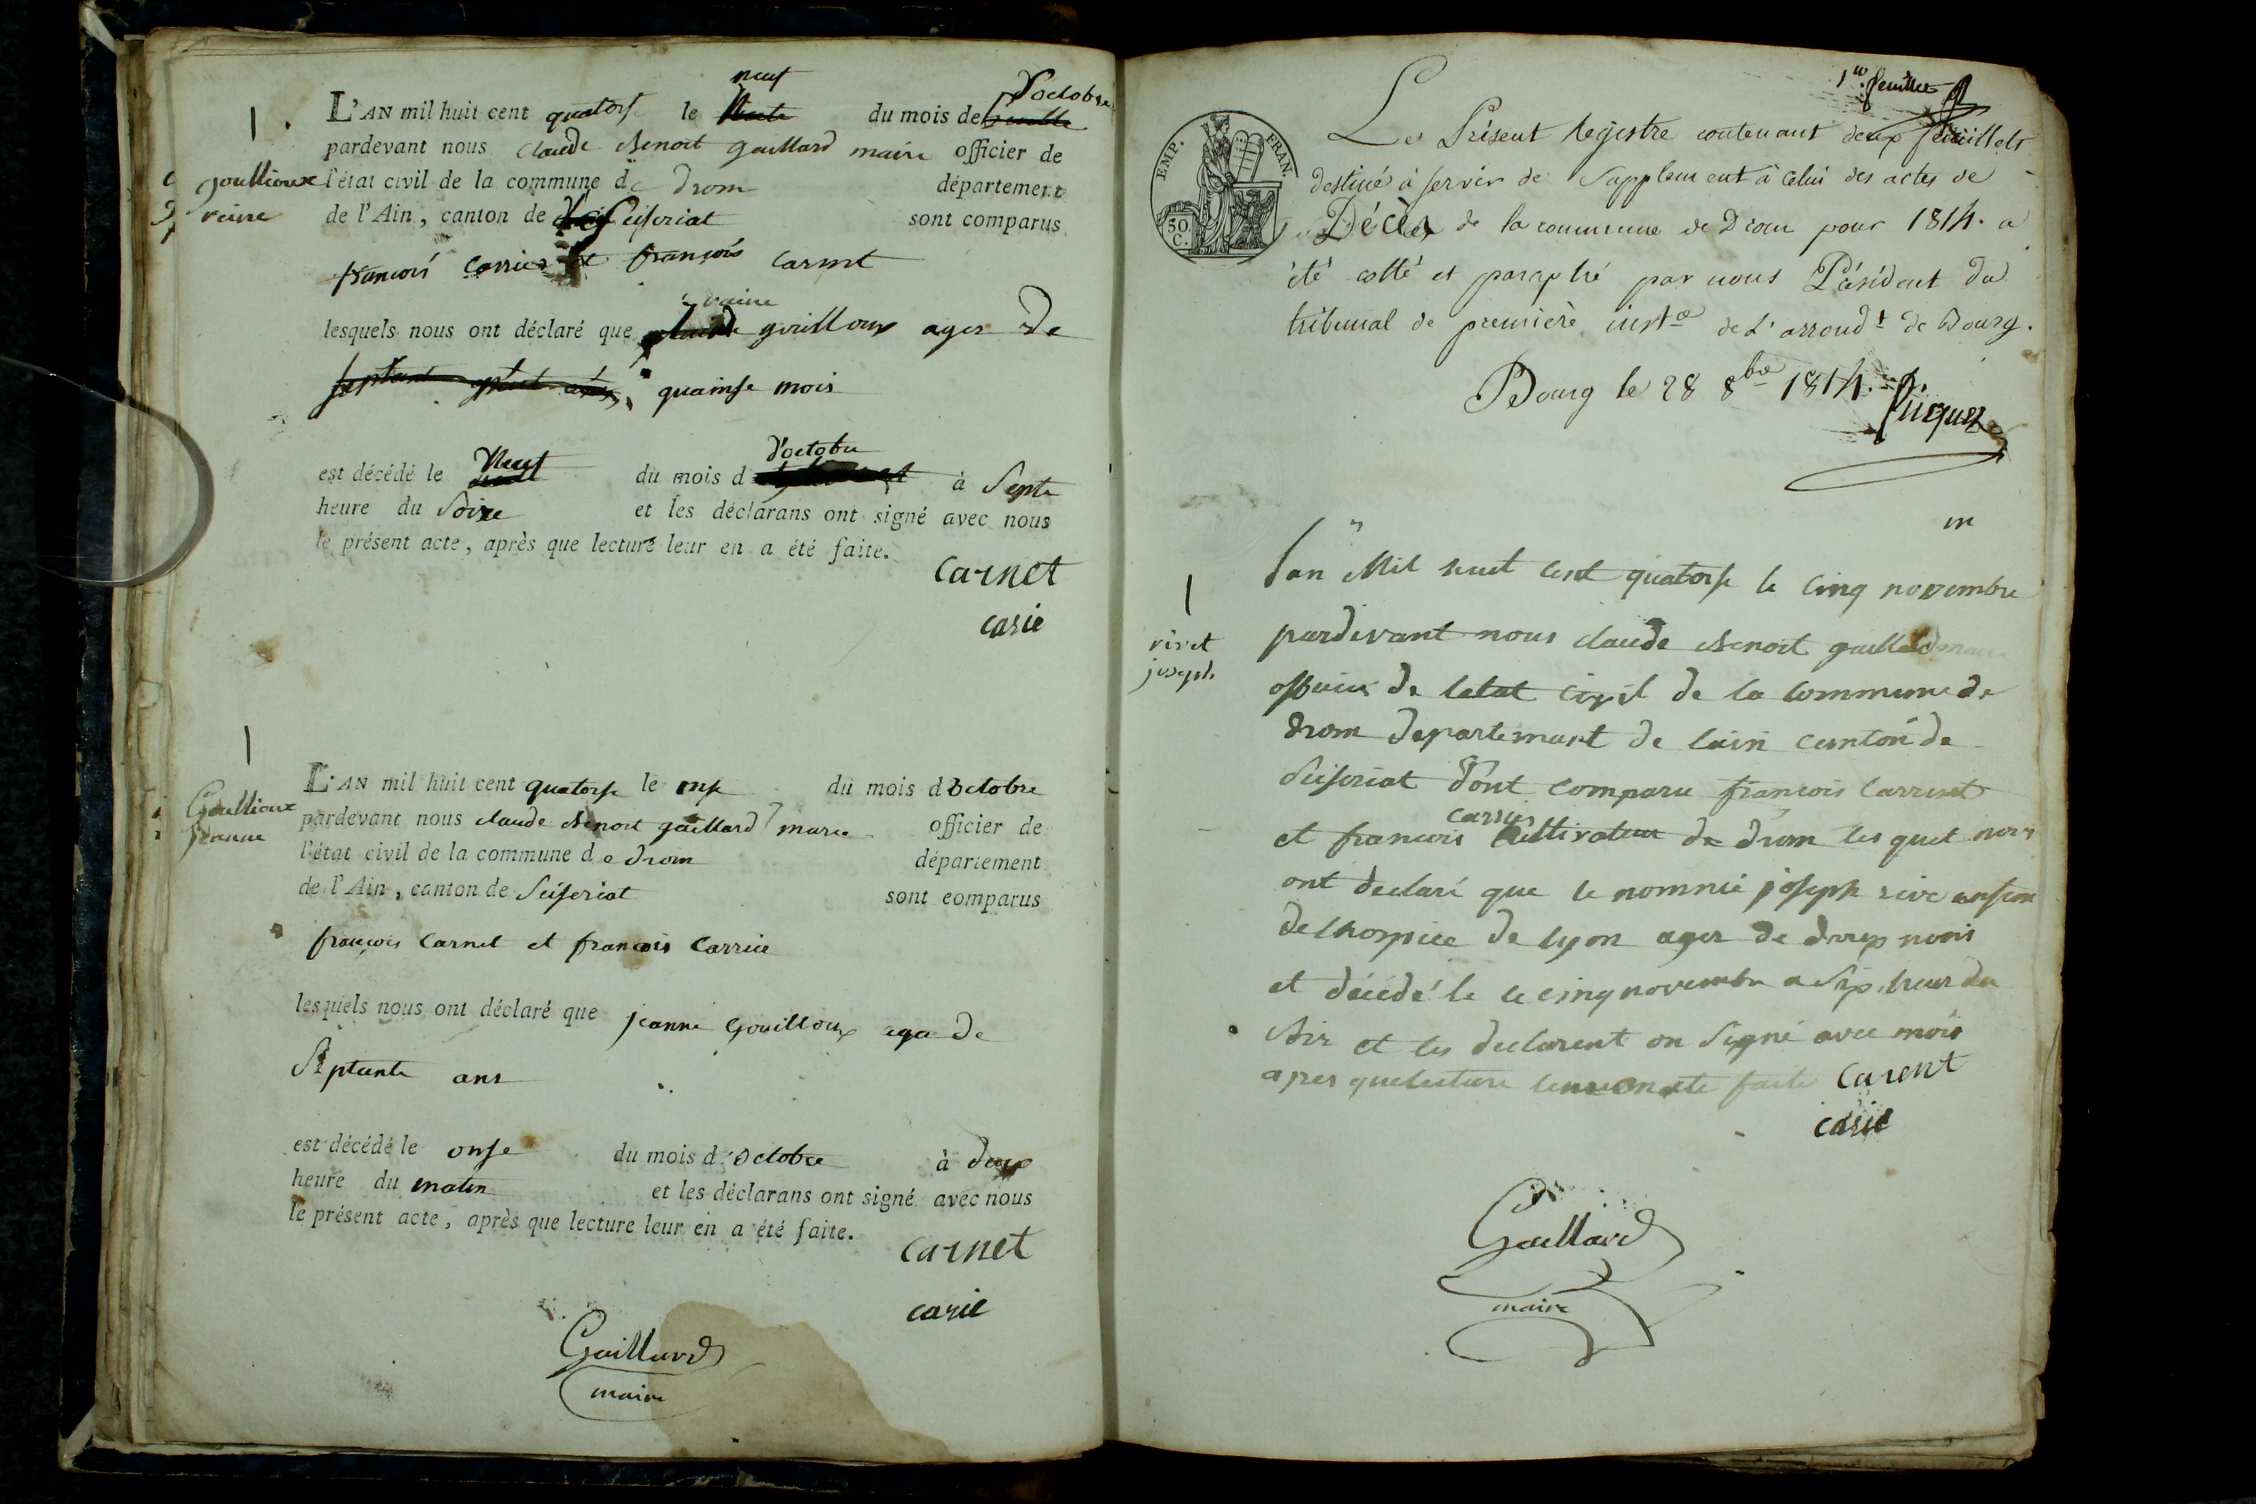 1.
goullioux
reine
neuf
d'octobre
L'AN mil huit cent quatorse le du mois de
pardevant nous claude Benoit gaillard maire officier de
l'état civil de la commune de drom département
de l'Ain, canton de Ceiseriat sont comparus
francois carrier et françois carnet
reine
lesquels nous ont déclaré que gouilloux ager de
quainse mois
d'octobre
est décédé le Neuf du mois d à Septe
heure du Soire et les déclarans ont signé avec nous
le présent acte, après que lecture leur en a été faite.
carnet
carie
1
Goullioux
jeanne
L'AN mil huit cent quatorse le onse du mois d'octobre
pardevant nous claude Benoit gaillard maire officier de
l'état civil de la commune de drom département
de l'Ain, canton de Seiseriat sont comparus
françois Carnet et francois Carrier
lesquels nous ont déclaré que jeanne Gouilloux age de
Septante ans
est décédé le onse du mois d'Octobre à deux
heure du matin et les déclarans ont signé avec nous
le présent acte, après que lecture leur en a été faite.
carnet
carie
Gaillard
maire
1er feuillet
EMP. FRAN.
50
C.
Le Présent Regisstre contenant deux feuillets
destiné à servir de Supplement à celui des actes de
Décès de la commune de Drom pour 1814. a
été cotté et paraphé par nous Président du
tribunal de première inst.ce de L'arrond.t de Bourg.
Bourg le 28 8bre 1814.
1
rivet
joseph
Lan Mil huit cent quatorse le cinq novembre
pardevant nous claude Benoit gaillard maire
officier de letat civil de la commune de
drom departemant de lain canton de
Seiseriat Sont comparu francois Carrnet
carrier
et francois cultivateur de drom les quel nous
ont declaré que le nommé joseph rive anfan
de lhospice de lyon ager de deux mois
et décédé le le cinq novembre a Six heur du
Soir et les declarent on Signé avec mois
apres que lecture faite Carent
carie
Gaillard
maire